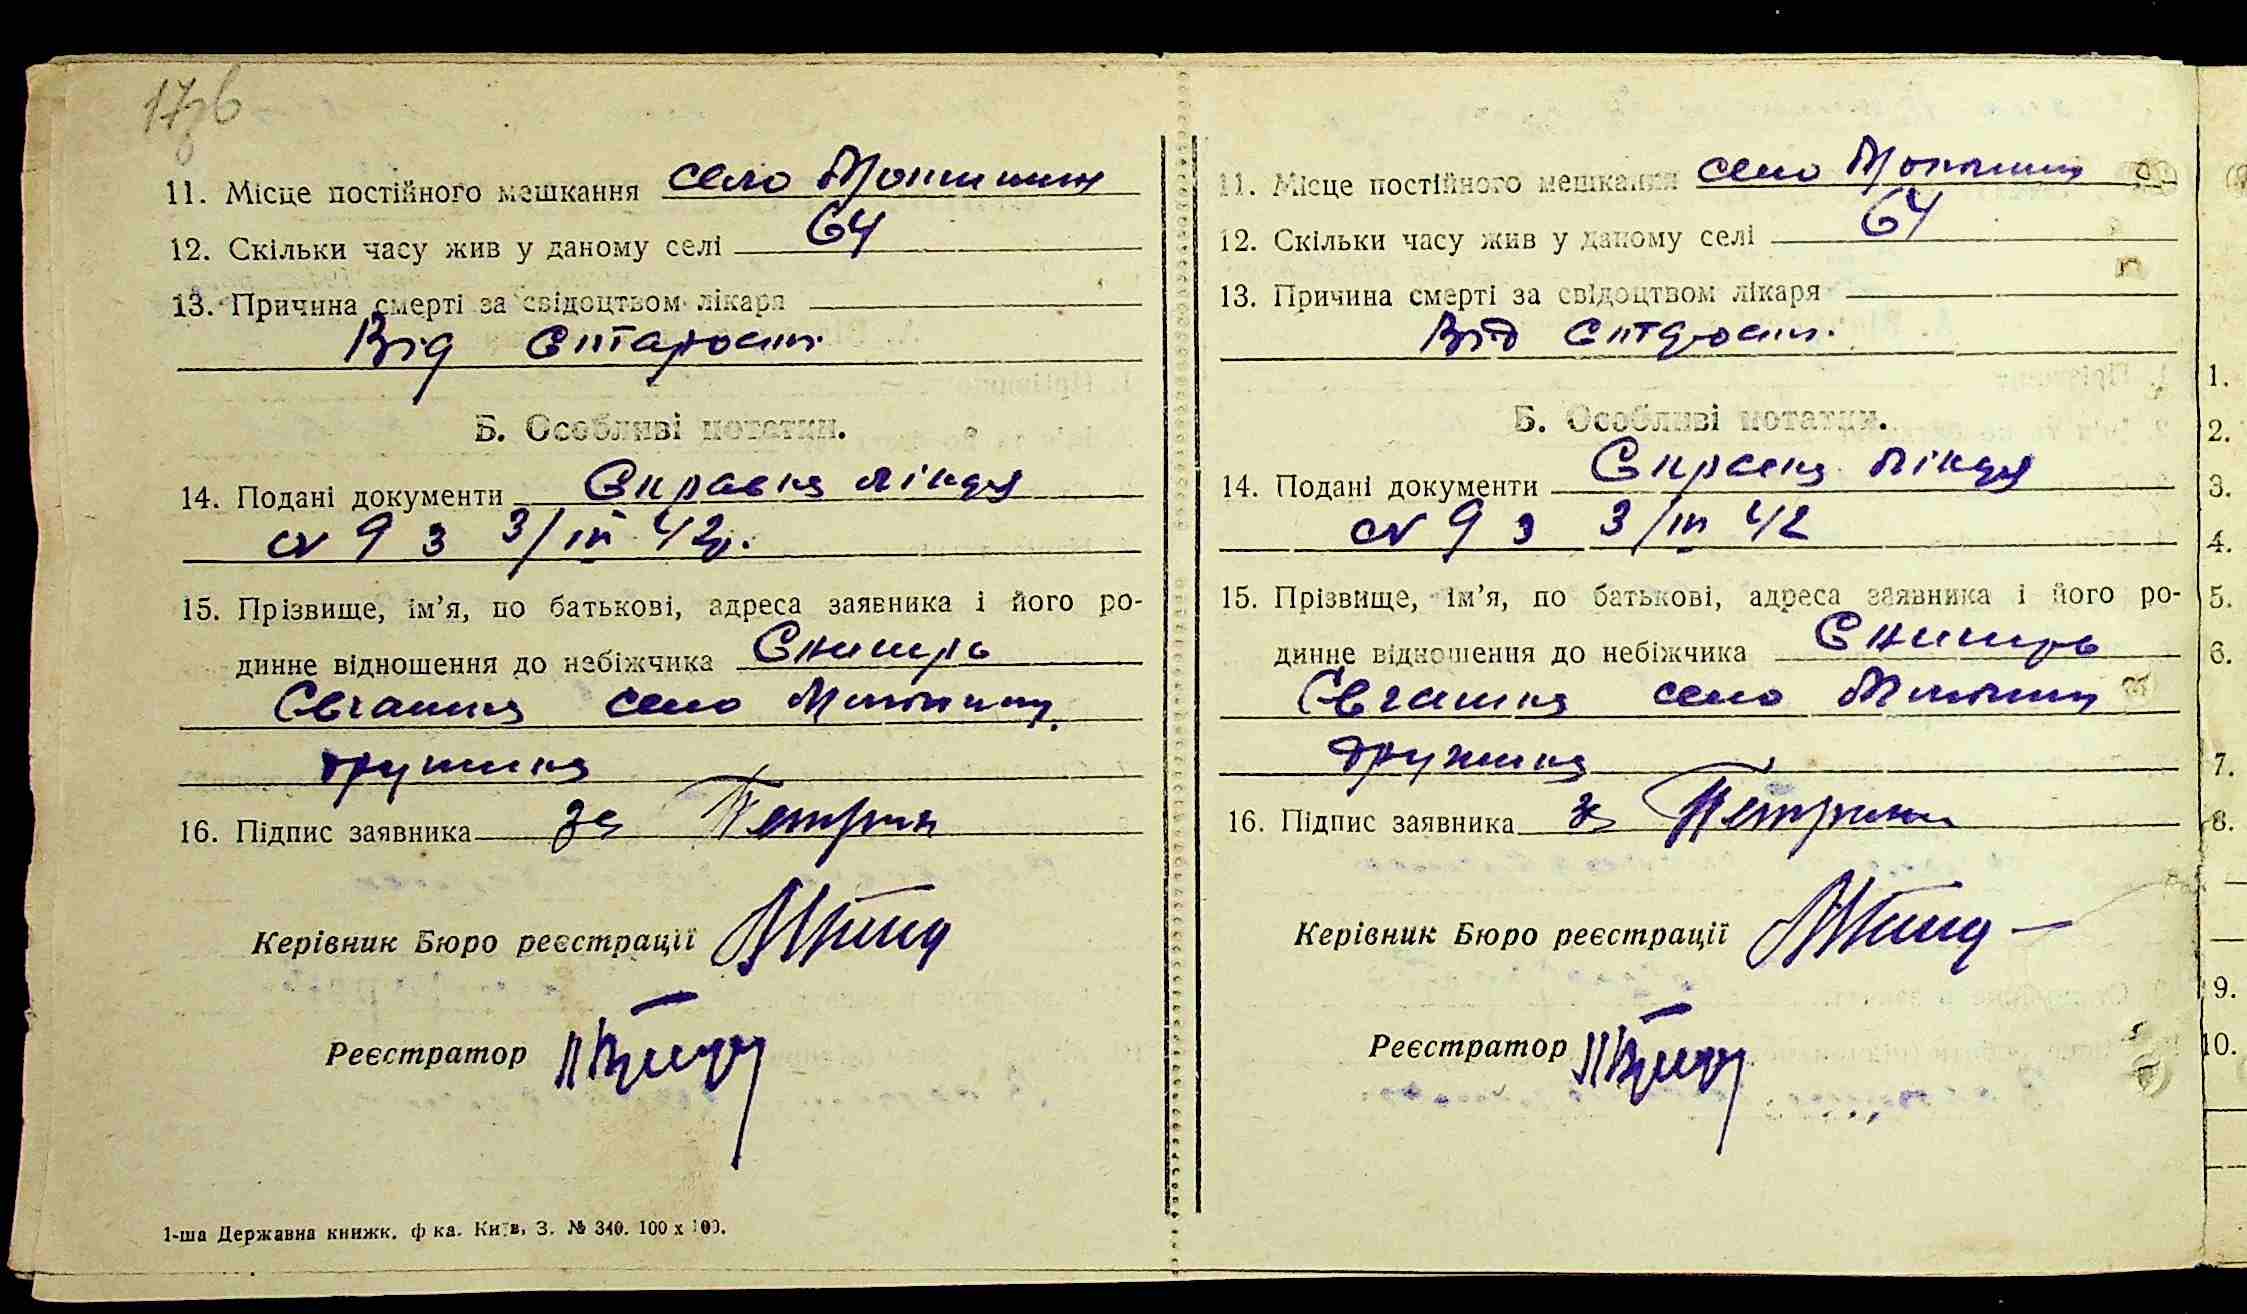 17зв
11. Місце постійного мешкання село
12. Скільки часу жив у даному селі 64
13. Причина смерті за свідоцтвом лікаря
Від старости.
Б. Особливі нотатки.
14. Подані документи Справка лікаря
№ 9 з 3/III 42р.
15. Прізвище, ім'я, по батькові, адреса заявника і його ро-
динне відношення до небіжчика
село
дружина
16. Підпис заявника за
Керівник Бюро реєстрації
Реєстратор
1-ша Державна книжк. ф-ка. Київ, З. № 340. 100 х 100.
11. Місце постійного мешкання село
12. Скільки часу жив у даному селі 64
13. Причина смерті за свідоцтвом лікаря
Від старости.
Б. Особливі нотатки.
14. Подані документи Справка лікаря
№ 9 з 3/III 42
15. Прізвище, ім'я, по батькові, адреса заявника і його ро-
динне відношення до небіжчика
село
дружина
16. Підпис заявника за
Керівник Бюро реєстрації
Реєстратор
1.
2.
3.
4.
5.
6.
7.
8.
9.
10.